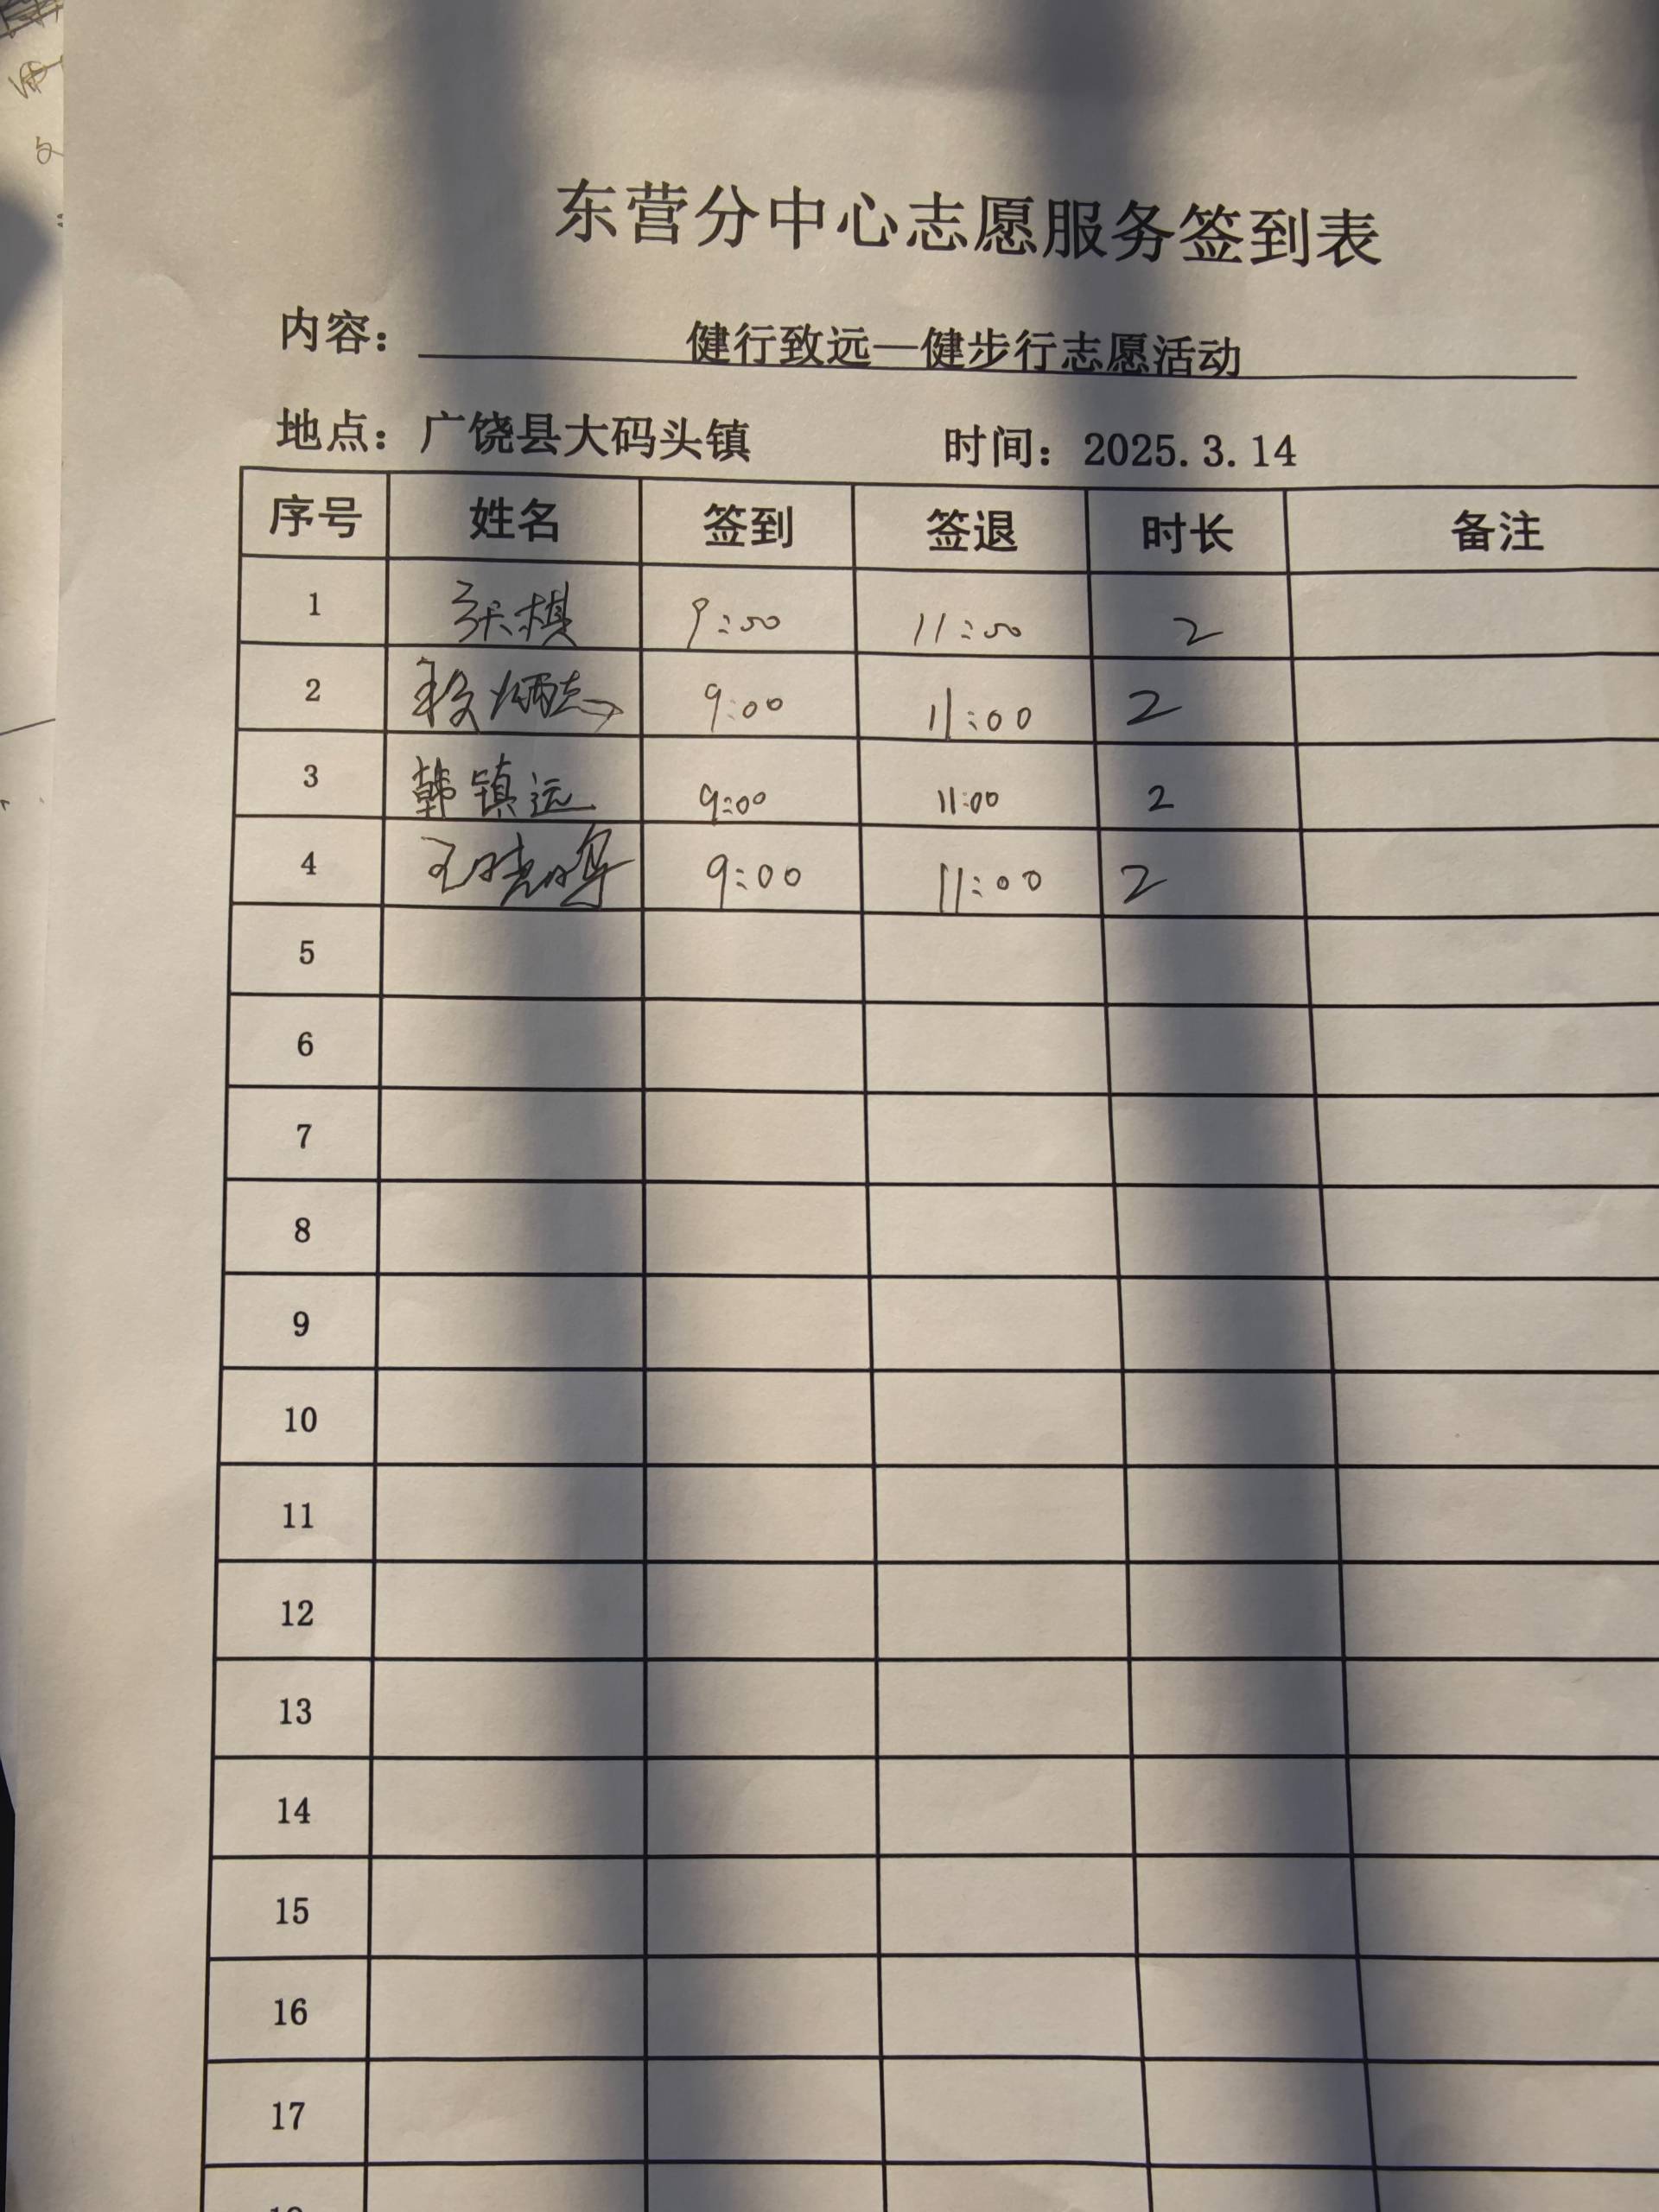 东营分中心志愿服务签到表
内容： 健行致远—健步行志愿活动
地点：广饶县大码头镇 时间：2025.3.14
序号 姓名 签到 签退 时长 备注
1 张棋 9:00 11:00 2
2 9:00 11:00 2
3 韩镇远 9:00 11:00 2
4 王晓鸣 9:00 11:00 2
5
6
7
8
9
10
11
12
13
14
15
16
17